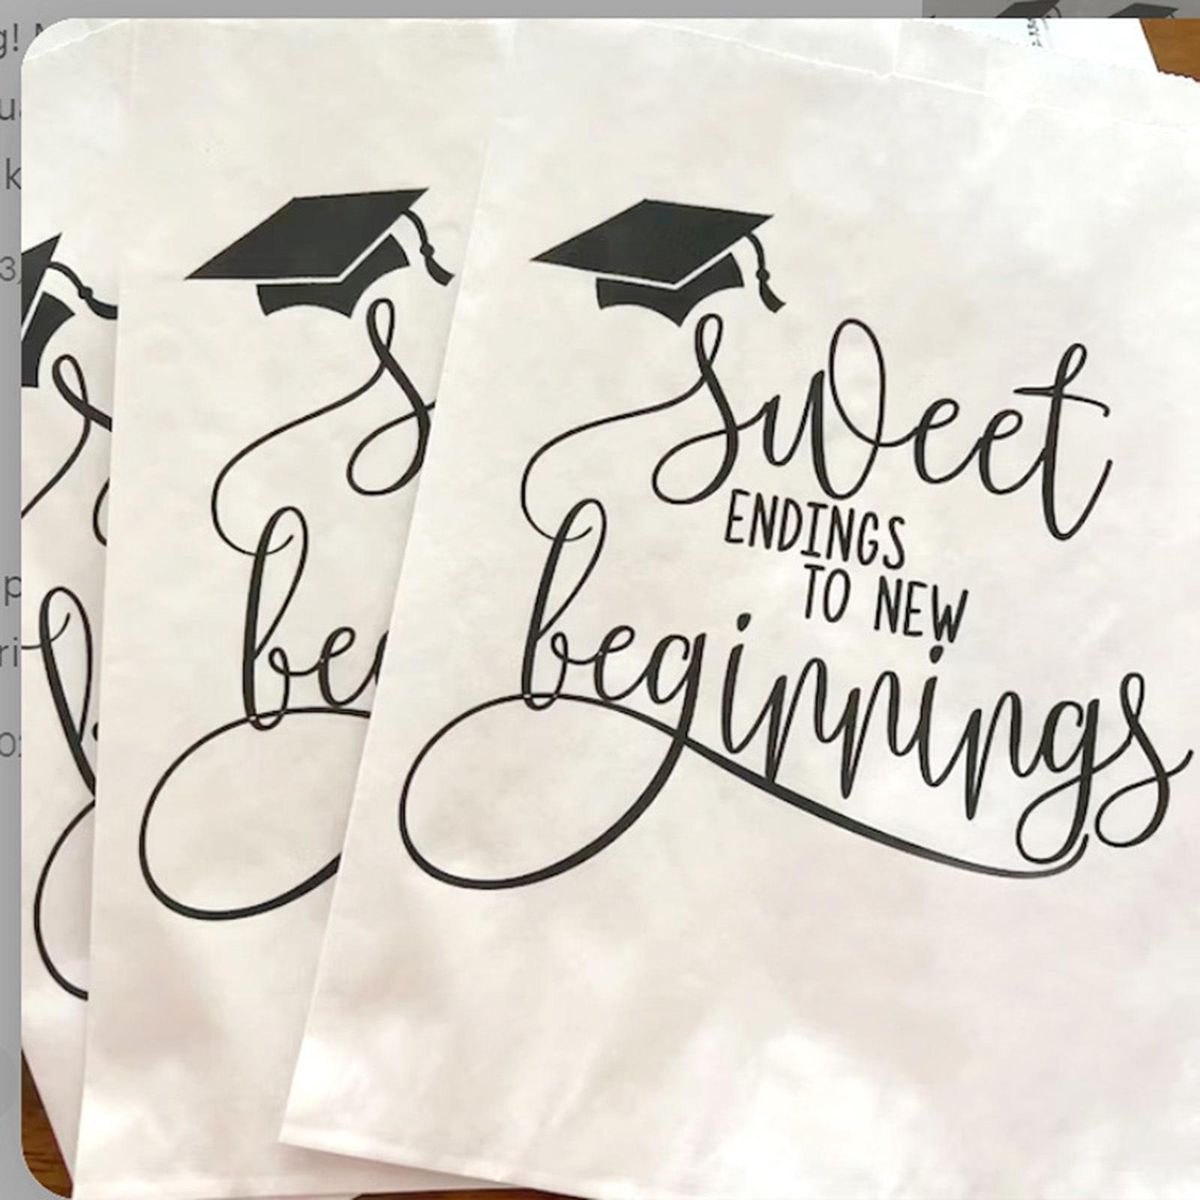 sweet
ENDINGS
TO NEW
beginnings
s
be